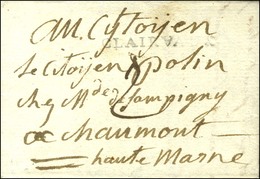 au Citoyen
BLAIN
le Citoyen polin
chez Mde de Sampigny
a chaumont
haute Marne